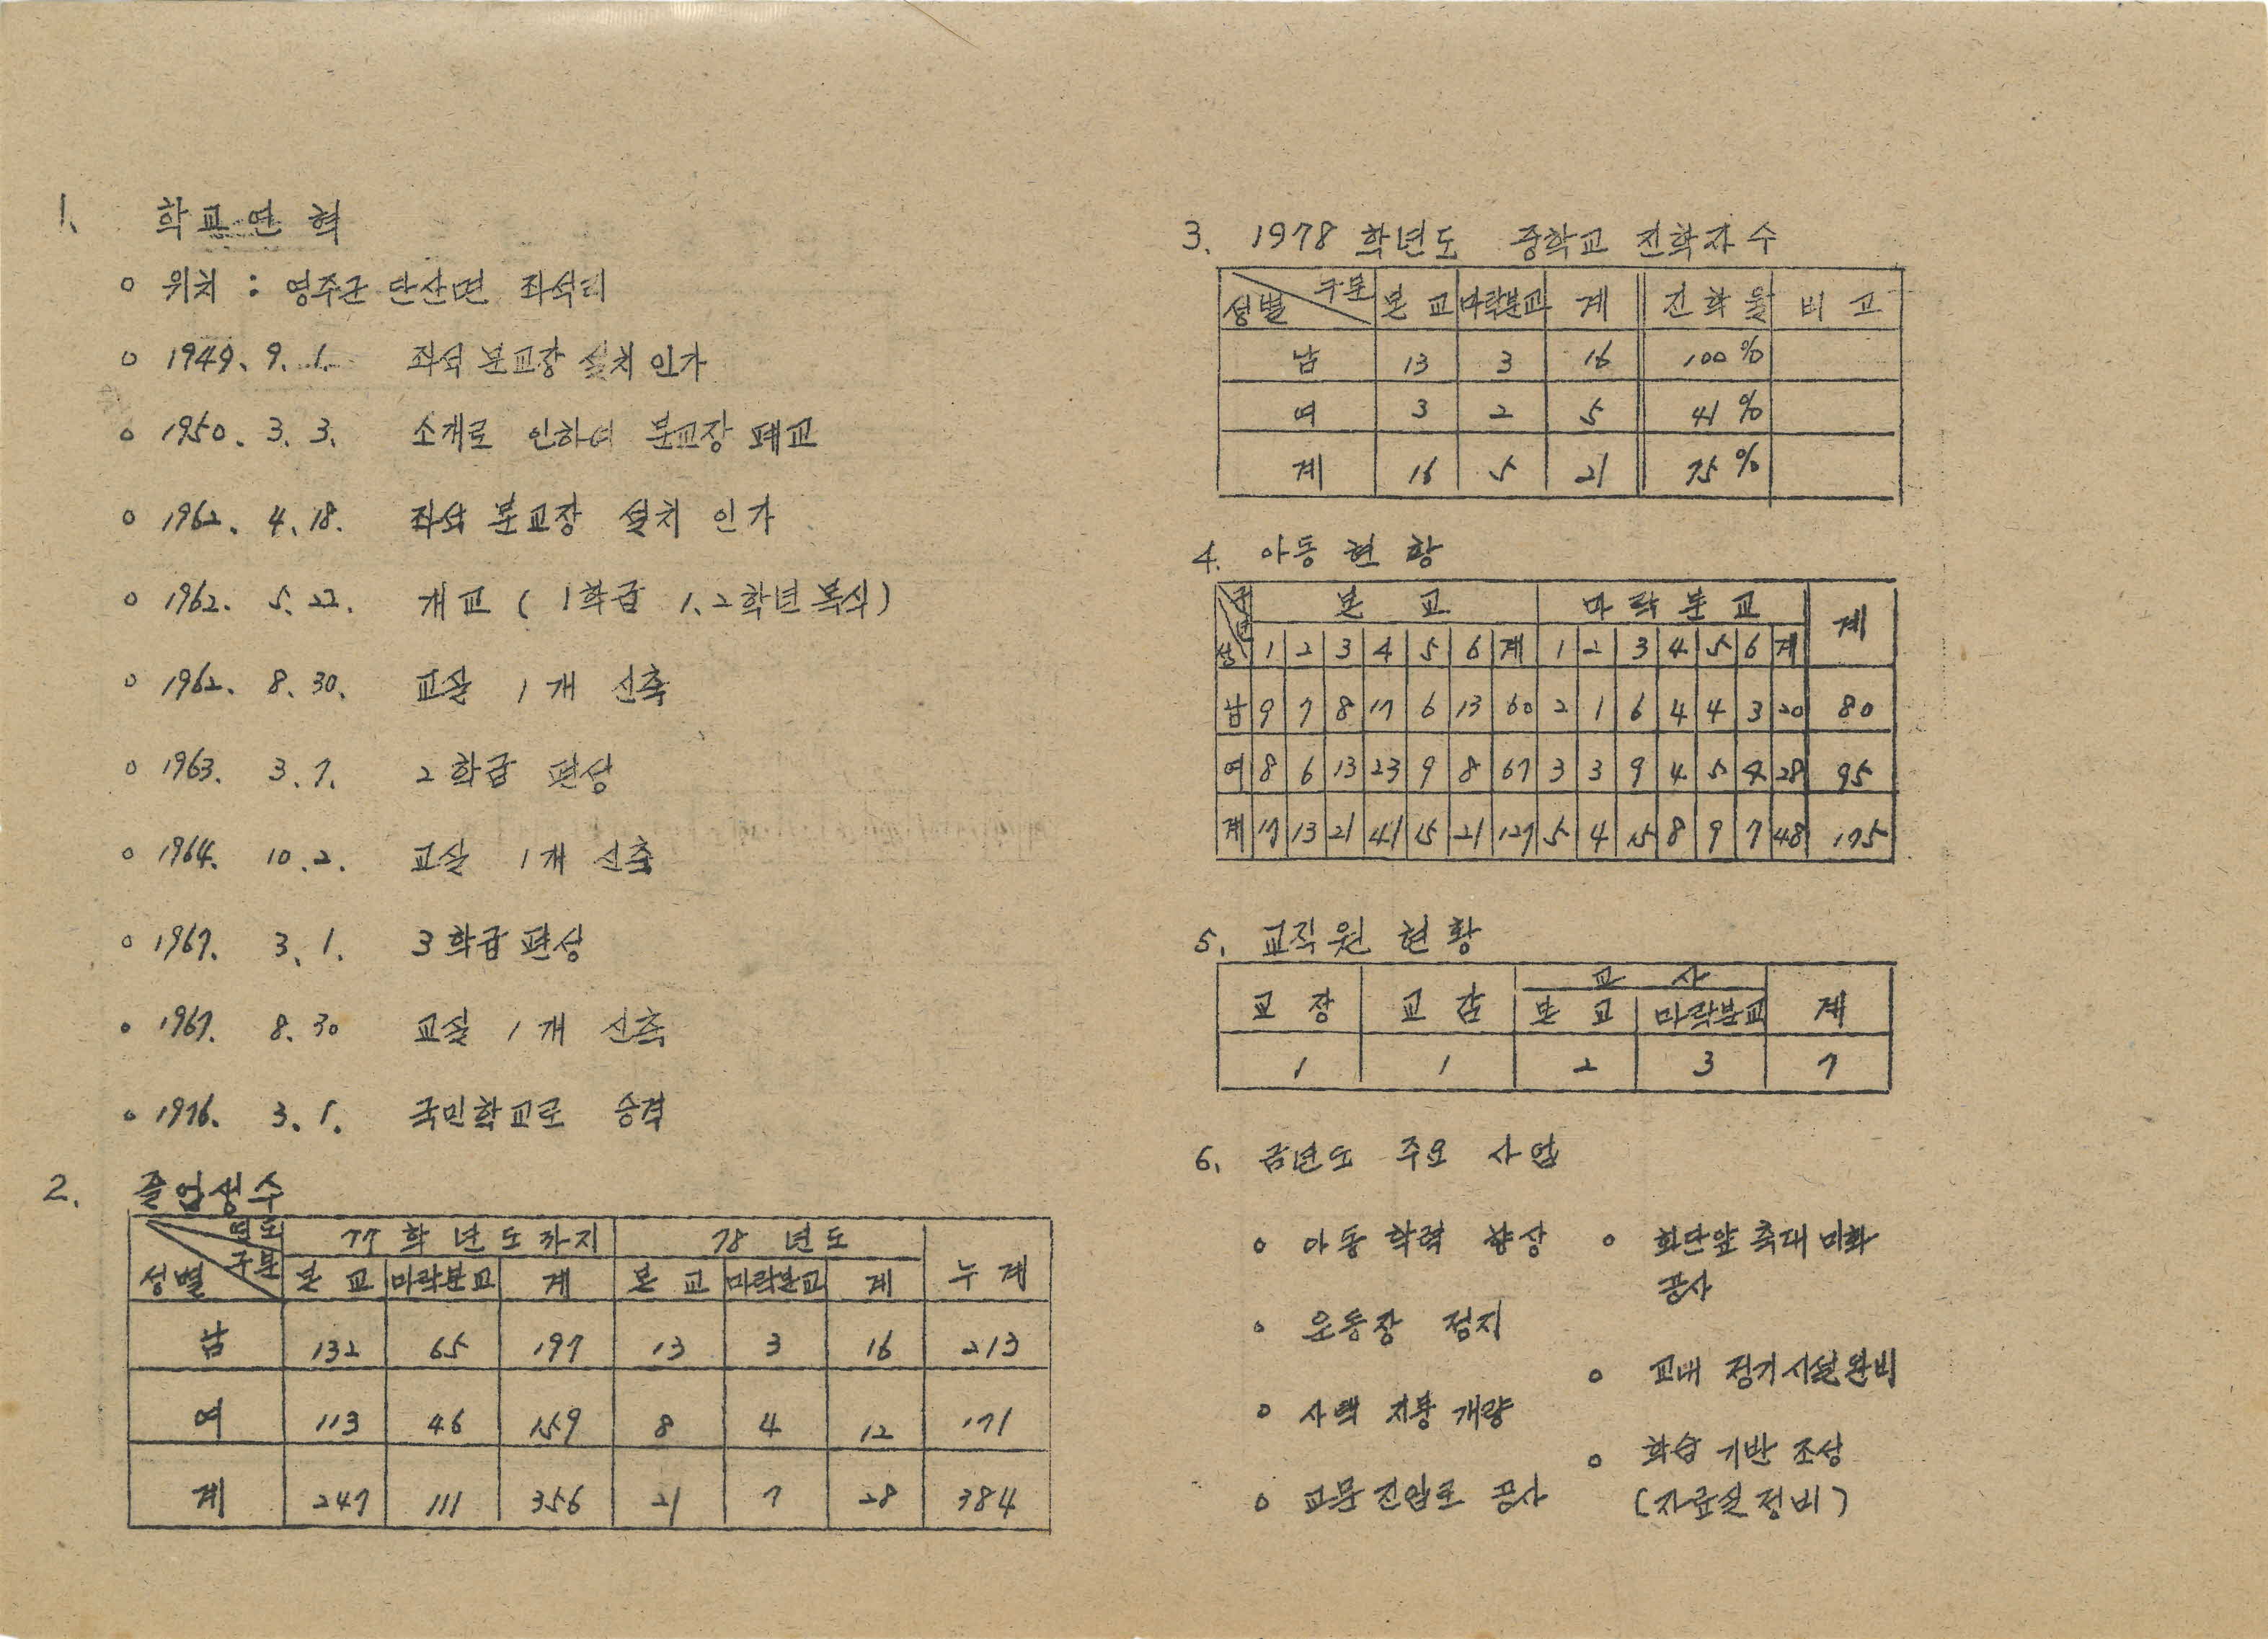 1. 학교연혁
o 위치 : 영주군 단산면 좌석리
o 1949. 9. 1. 좌석 분교장 설치 인가
o 1950. 3. 3. 소개로 인하여 분교장 폐교
o 1962. 4. 18. 좌석 분교장 설치 인가
o 1962. 5. 22. 개교 ( 1학급 1.2학년 복식 )
o 1962. 8. 30. 교실 1개 신축
o 1963. 3. 7. 2학급 편성
o 1964. 10. 2. 교실 1개 신축
o 1967. 3. 1. 3학급 편성
o 1967. 8. 30 교실 1개 신축
o 1976. 3. 1. 국민학교로 승격
2. 졸업생수
년도 구분 성별 77학년도까지 78년도 누계
본교 마락분교 계 본교 마락분교 계
남 132 65 197 13 3 16 213
여 113 46 159 8 4 12 171
계 247 111 356 21 7 28 384
3. 1978 학년도 중학교 진학자수
성별 구분 본교 마락분교 계 진학율 비고
남 13 3 16 100%
여 3 2 5 41%
계 16 5 21 75%
4. 아동현황
구 년 본교 마락분교 계
성 1 2 3 4 5 6 계 1 2 3 4 5 6 계
남 9 7 8 17 6 13 60 2 1 6 4 4 3 20 80
여 8 6 13 23 9 8 67 3 3 9 4 5 4 28 95
계 17 13 21 41 15 21 127 5 4 15 8 9 7 48 175
5. 교직원 현황
교장 교감 교사 계
본교 마락분교
1 1 2 3 7
6. 금년도 주요 사업
o 아동 학력 향상
o 운동장 정지
o 사택 지붕 개량
o 교문 진입로 공사
o 화단앞 축대 미화
공사
o 교내 전기시설완비
o 학습 기반 조성
(자료실 정비)